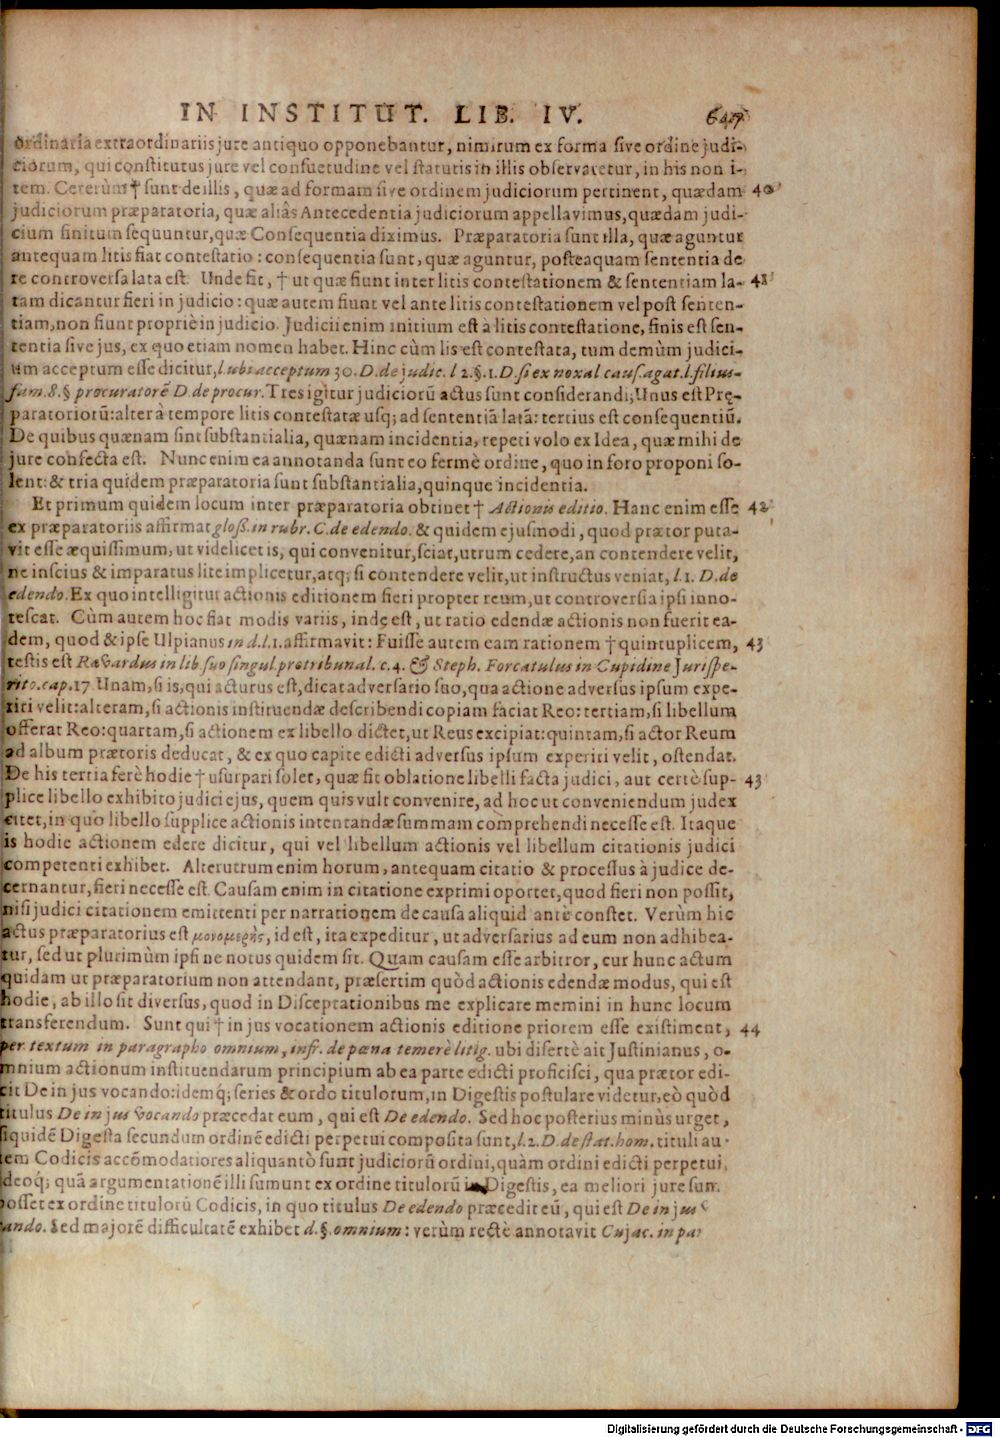 IN INSTITUT. LIB. IV. 647
ordinaria extraordinariis jure antiquo opponebantur, nimirum ex forma sive ordine judi-
ciorum, qui constitutus jure vel consuetudine vel statutis in illis observaretur, in his non i-
tem. Cererùm † sunt de illis, quæ ad formam sive ordinem judiciorum pertinent, quædam 40
judiciorum præparatoria, quæ aliâs Antecedentia judiciorum appellavimus, quædam judi-
cium finitum sequuntur, quæ Consequentia diximus. Præparatoria sunt illa, quæ aguntur
antequam litis fiat contestatio: consequentia sunt, quæ aguntur, posteaquam sententia de
re controversa lata est. Unde fit, † ut quæ fiunt inter litis contestationem & sententiam la- 41
tam dicantur fieri in judicio: quæ autem fiunt vel ante litis contestationem vel post senten-
tiam, non fiunt propriè in judicio. Judicii enim initium est à litis contestatione, finis est sen-
tentia sive jus, ex quo etiam nomen habet. Hinc cùm lis est contestata, tum demùm judici-
um acceptum esse dicitur, l. ubi acceptum 30. D. de judic. l 2. §. 1. D. si ex noxal caus. agat. l. filius-
fam. 8. § procuratorẽ D. de procur. Tres igitur judiciorũ actus sunt considerandi; Unus est Pręe-
paratoriorũ: alter à tempore litis contestatæ usq; ad sententiã latã: tertius est consequentiũ.
De quibus quænam sint substantialia, quænam incidentia, repeti volo ex Idea, quæ mihi de
jure confecta est. Nunc enim ea annotanda sunt eo fermè ordine, quo in foro proponi so-
lent: & tria quidem præparatoria sunt substantialia, quinque incidentia.
Et primum quidem locum inter præparatoria obtinet † Actionis editio. Hanc enim esse 42
ex præparatoriis affirmat gloß. in rubr. C. de edendo. & quidem ejusmodi, quod prætor puta-
vit esse æquissimum, ut videlicet is, qui convenitur, sciat, utrum cedere, an contendere velit,
ne inscius & imparatus lite implicetur, atq; si contendere velit, ut instructus veniat, l. 1. D. de
edendo. Ex quo intelligitur actionis editionem fieri propter reum, ut controversia ipsi inno-
tescat. Cùm autem hoc fiat modis variis, inde est, ut ratio edendæ actionis non fuerit ea-
dem, quod & ipse Ulpianus in d. l. 1. affirmavit: Fuisse autem eam rationem † quintuplicem, 43
testis est Ravardus in lib. suo singul. protribunal. c. 4. & Steph. Forcatulus in Cupidine Jurispe-
rito. cap. 17 Unam, si is, qui acturus est, dicat adversario suo, qua actione adversus ipsum expe-
riri velit: alteram, si actionis instituendæ describendi copiam faciat Reo: tertiam, si libellum
offerat Reo: quartam, si actionem ex libello dictet, ut Reus excipiat: quintam, si actor Reum
ad album prætoris deducat, & ex quo capite edicti adversus ipsum experiri velit, ostendat.
De his tertia ferè hodie † usurpari solet, quæ fit oblatione libelli facta judici, aut certè sup- 43
plice libello exhibito judici ejus, quem quis vult convenire, ad hoc ut conveniendum judex
citet, in quo libello supplice actionis intentandæ summam comprehendi necesse est. Itaque
is hodie actionem edere dicitur, qui vel libellum actionis vel libellum citationis judici
competenti exhibet. Alterutrum enim horum, antequam citatio & processus à judice de-
cernantur, fieri necesse est. Causam enim in citatione exprimi oportet, quod fieri non possit,
nisi judici citationem emittenti per narrationem de causa aliquid antè constet. Verùm hic
actus præparatorius est μονομερὴς, id est, ita expeditur, ut adversarius ad eum non adhibea-
tur, sed ut plurimùm ipsi ne notus quidem sit. Quam causam esse arbitror, cur hunc actum
quidam ut præparatorium non attendant, præsertim quòd actionis edendæ modus, qui est
hodie, ab illo sit diversus, quod in Disceptationibus me explicare memini in hunc locum
transferendum. Sunt qui † in jus vocationem actionis editione priorem esse existiment, 44
per textum in paragrapho omnium, infr. de pœna temerè litig. ubi disertè ait Justinianus, o-
mnium actionum instituendarum principium ab ea parte edicti proficisci, qua prætor edi-
cit De in jus vocando: idemq́; series & ordo titulorum, in Digestis postulare videtur, eò quòd
titulus De in jus vocando præcedat eum, qui est De edendo. Sed hoc posterius minùs urget,
siquidẽ Digesta secundum ordinẽ edicti perpetui composita sunt, l. 2. D. de stat. hom. tituli au-
tem Codicis accõmodatiores aliquantò sunt judiciorũ ordini, quàm ordini edicti perpetui,
ideoq́; quã argumentationẽ illi sumunt ex ordine titulorũ in Digestis, ea meliori jure sum
posset ex ordine titulorũ Codicis, in quo titulus De edendo præcedit eũ, qui est De in jus
ando. Sed majorẽ difficultatẽ exhibet d. §. omnium: verùm rectè annotavit Cujac. in pa
Digitalisierung gefördert durch die Deutsche Forschungsgemeinschaft - DFG